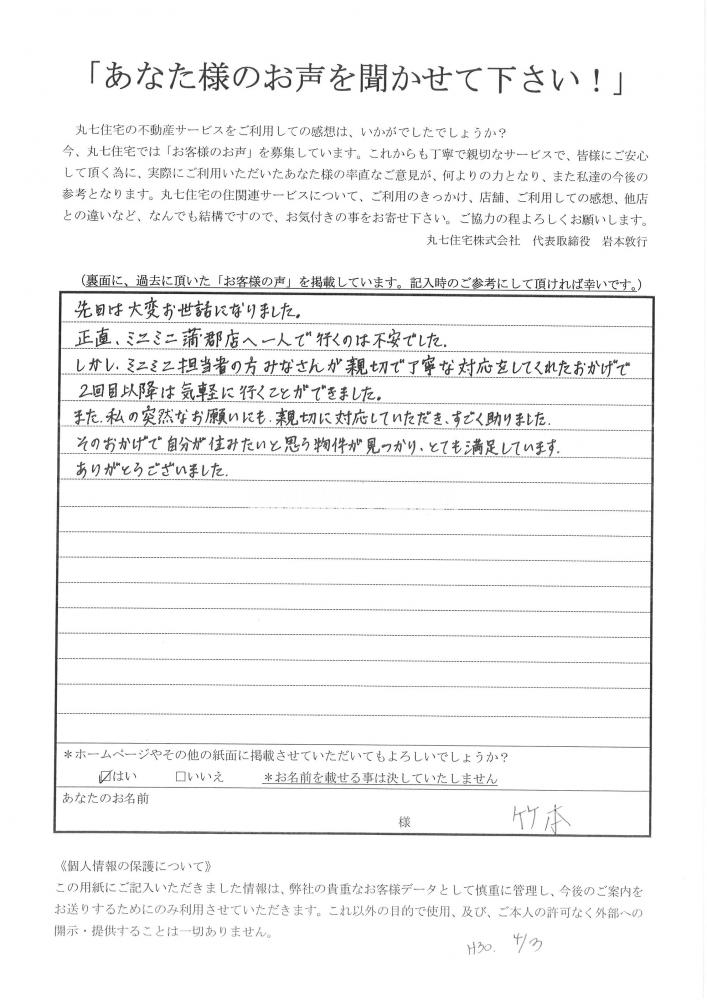 「あなた様のお声を聞かせて下さい！」
丸七住宅の不動産サービスをご利用しての感想は、いかがでしたでしょうか？
今、丸七住宅では「お客様のお声」を募集しています。これからも丁寧で親切なサービスで、皆様にご安心
して頂く為に、実際にご利用いただいたあなた様の率直なご意見が、何よりの力となり、また私達の今後の
参考となります。丸七住宅の住関連サービスについて、ご利用のきっかけ、店舗、ご利用しての感想、他店
との違いなど、なんでも結構ですので、お気付きの事をお寄せ下さい。ご協力の程よろしくお願いします。
丸七住宅株式会社　代表取締役　岩本敦行
（裏面に、過去に頂いた「お客様の声」を掲載しています。記入時のご参考にして頂ければ幸いです。）
先日は大変お世話になりました。
正直、ミニミニ蒲郡店へ一人で行くのは不安でした.
しかし、ミニミニ担当者の方みなさんが親切で丁寧な対応をしてくれたおかげで
2回目以降は気軽に行くことができました。
また、私の突然なお願いにも、親切に対応していただき、すごく助りました.
そのおかげで自分が住みたいと思う物件が見つかり、とても満足しています.
ありがとうございました.
＊ホームページやその他の紙面に掲載させていただいてもよろしいでしょうか？
☑はい　□いいえ　＊お名前を載せる事は決していたしません
あなたのお名前
様　竹本
《個人情報の保護について》
この用紙にご記入いただきました情報は、弊社の貴重なお客様データとして慎重に管理し、今後のご案内を
お送りするためにのみ利用させていただきます。これ以外の目的で使用、及び、ご本人の許可なく外部への
開示・提供することは一切ありません。
H30. 4/3